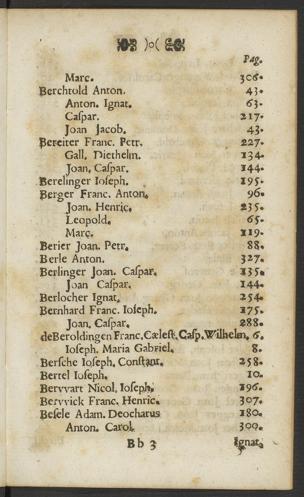 Pag.
Marc. 306.
Berchtold Anton. 43.
Anton. Ignat. 63.
Caſpar. 217.
Joan Jacob. 43.
Bereiter Franc. Petr. 227.
Gall. Diethelm. 134.
Joan. Caſpar. 144.
Berelinger Ioſeph. 195.
Berger Franc. Anton. 96.
Joan. Henric. 235.
Leopold. 65.
Marc. 119.
Berier Joan. Petr. 88.
Berle Anton. 327.
Berlinger Joan. Caſpar. 135.
Joan Caſpar. 144.
Berlocher Ignat. 254.
Bernhard Franc. Ioſeph. 175.
Joan. Caſpar. 288.
deBeroldingen Franc. Cæleſt. Caſp. Wilhelm. 6.
Ioſeph. Maria Gabriel. 8.
Berſche Ioſeph. Conſtant. 258.
Bertel Ioſeph. 10.
Bervvart Nicol. Ioſeph. 196.
Bervvick Franc. Henric. 307.
Beſele Adam. Deocharus 180.
Anton. Carol. 309.
Bb 3 Ignat.